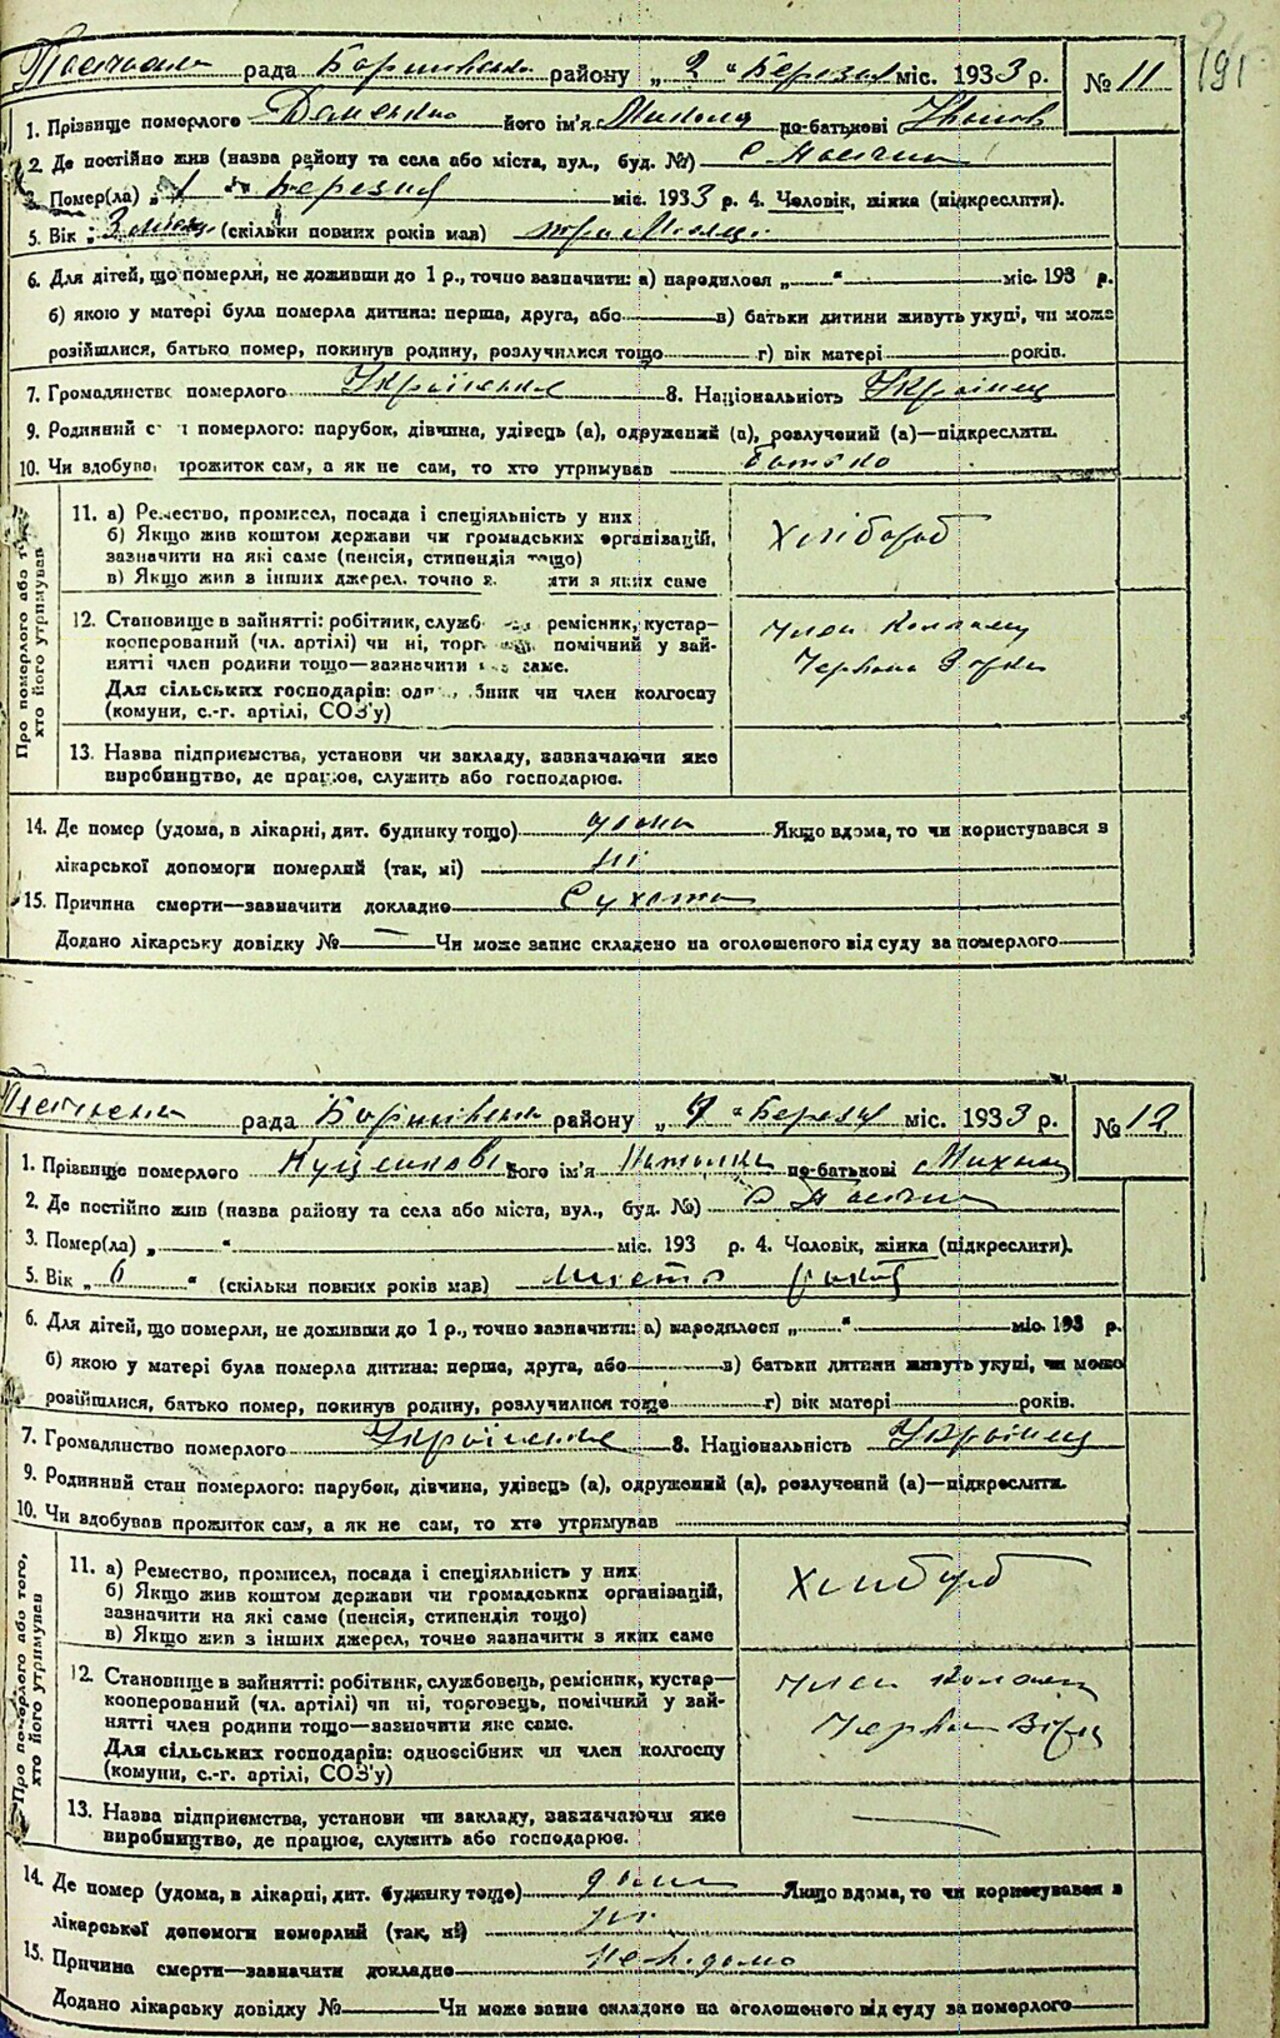 рада Баришівського району „ 2 “ Березня міс. 1933 р. № 11
191
1. Прізвище померлого Даменко його ім'я Микола по-батькові Іванов
2. Де постійно жив (назва району та села або міста, вул., буд. №) с
3. Помер(ла) „ 1 “ Березня міс. 1933 р. 4. Чоловік, жінка (підкреслити).
5. Вік „ 3 місяц (скільки повних років мав) три місяці
6. Для дітей, що померли, не доживши до 1 р., точно зазначити: а) народилося „ “ міс. 193 р.
б) якою у матері була померла дитина: перша, друга, або в) батьки дитини живуть укупі, чи може
розійшлися, батько помер, покинув родину, розлучилися тощо г) вік матері років.
7. Громадянство померлого Українське 8. Національність Українец
9. Родинний с н померлого: парубок, дівчина, удівець (а), одружений (а), розлучений (а)—підкреслити.
10. Чи здобував прожиток сам, а як не сам, то хто утримував батько
Про померлого або т
хто його утримував
11. а) Ремество, промисел, посада і спеціяльність у них
б) Якщо жив коштом держави чи громадських організацій,
зазначити на які саме (пенсія, стипендія тощо)
в) Якщо жив з інших джерел, точно з яти з яких саме
хлібороб
12. Становище в зайнятті: робітник, служб ремісник, кустар—
кооперований (чл. артілі) чи ні, торг помічний у зай-
нятті член родини тощо—зазначити яке саме.
Для сільських господарів: одн бник чи член колгоспу
(комуни, с.-г. артілі, СОЗ'у)
член Колгоспу
Червона Зірка
13. Назва підприємства, установи чи закладу, зазначаючи яке
виробництво, де працює, служить або господарює.
14. Де помер (удома, в лікарні, дит. будинку тощо) дома Якщо вдома, то чи користувався з
лікарської допомоги померлий (так, ні) ні
15. Причина смерти—зазначити докладно Сухота
Додано лікарську довідку № — Чи може запис складено на оголошеного від суду за померлого
рада Баришівського району „ “ Березня міс. 1933 р. № 12
1. Прізвище померлого Куценкова його ім'я Наталка по-батькові Михайл
2. Де постійно жив (назва району та села або міста, вул., буд. №) с
3. Помер(ла) „ “ міс. 193 р. 4. Чоловік, жінка (підкреслити).
5. Вік „ 6 “ (скільки повних років мав) шість років
6. Для дітей, що померли, не доживши до 1 р., точно зазначити: а) народилося „ “ міс. 193 р.
б) якою у матері була померла дитина: перша, друга, або в) батьки дитини живуть укупі, чи може
розійшлися, батько помер, покинув родину, розлучилися тоще г) вік матері років.
7. Громадянство померлого Українське 8. Національність Українец
9. Родинний стан померлого: парубок, дівчина, удівець (а), одружений (а), розлучений (а)—підкреслити.
10. Чи здобував прожиток сам, а як не сам, то хто утримував
Про померлого або того,
хто його утримував
11. а) Ремество, промисел, посада і спеціяльність у них
б) Якщо жив коштом держави чи громадських організацій,
зазначити на які саме (пенсія, стипендія тощо)
в) Якщо жив з інших джерел, точно зазначити з яких саме
хлибороб
12. Становище в зайнятті: робітник, службовець, ремісник, кустар—
кооперований (чл. артілі) чи ні, торговець, помічний у зай-
нятті член родини тощо—зазначити яке саме.
Для сільських господарів: одноосібник чи член колгоспу
(комуни, с.-г. артілі, СОЗ'у)
член колгоспу
Червон Зірка
13. Назва підприємства, установи чи закладу, зазначаючи яке
виробництво, де працює, служить або господарює.
14. Де помер (удома, в лікарні, дит. будинку тоще) дома Якщо вдома, то чи користувався з
лікарської допомоги померлий (так, ні) ні
15. Причина смерти—зазначити докладно невідомо
Додано лікарську довідку № Чи може запис складено на оголошеного від суду за померлого